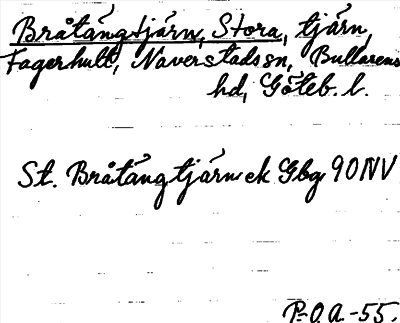 Bråtångtjärn, Stora, tjärn,
Fagerhult, Naverstads sn, Bullarens
hd, Göteb. l.
St. Bråtångtjärn ek Gbg 90NV
P.O.A.-55.